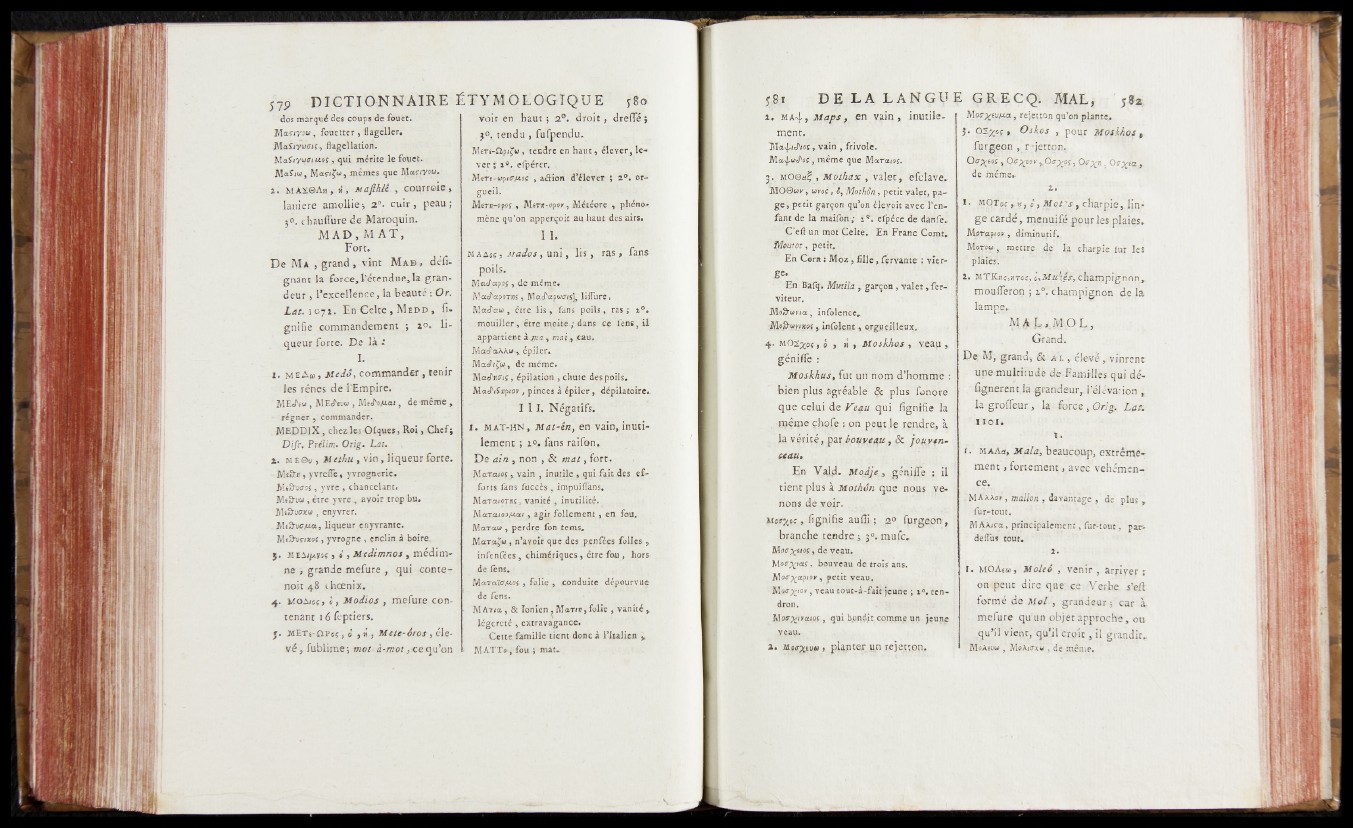 579 DICTIONNAIRE ÉTYMOLOGIQUE 580
dos marqué des coups de fouet.
Μαστιγοω, fouetter, flageller.
Μαστιγωσις, flagellation.
Μαστιγωσιμος, qui mérite le fouet.
Μαστιω, Μαστιζω, mêmes que Μαστιγοω.
2. ΜΑΣΘΛη, ἡ, Masthlé, courroie,
laniere amollie; 2°. cuir, peau;
3°. chaussure de Maroquin.
MAD, MAT,
Fort.
De MA, grand, vint MAD, dési-
gnant la force, l'étendue, la gran-
deur, l'excellence, la beauté: Or.
Lat. 1071. En Celte, MEDD, si-
gnifie commandement; 2°. li-
queur forte. De là:
I.
1. ΜΕΔω, Medô, commander, tenir
les rênes de l'Empire.
ΜΕδεω, ΜΕδεω, Μεδομαι, de même,
régner, commander.
MEDDIX, chez les Osques, Roi, Chef;
Disc. Prélim. Orig. Lat.
2. ΜΕΘυ, Methu, vin, liqueur forte.
Μεθη, yvresse, yvrognerie.
Μεθυσος, yvre, chancelant.
Μεθυω, être yvre, avoir trop bu.
Μεθυσκω, enyvrer.
Μεθυσμα, liqueur enyvrante.
Μεθυστικος, yvrogne, enclin à boire.
3. ΜΕΔιμνος, ὁ, Medimnos, médim-
ne, grande mesure, qui conte-
noit 48 chœnix.
4. ΜΟΔιος, ὁ, Modios, mesure con-
tenant 16 septiers.
5. ΜΕΤε-ΩΡος, ὁ, ἡ, Mete-óros, éle-
vé, sublime; mot-à-mot, ce qu'on
voit en haut; 2°. droit, dressé;
3°. tendu, suspendu.
Μετε-Ωριζω, tendre en haut, élever, le-
ver; 2°. espérer.
Μετε-ωρισμος, action d'élever; 2°. or-
gueil.
Μετη-ορος, Μετη-ορον, Météore, phéno-
mène qu'on apperçoit au haut des airs.
II.
ΜΑΔος, Mados, uni, lis, ras, sans
poils.
Μαδαρος, de même.
Μαδαροτης, Μαδαρωσις, lissure.
Μαδαω, être lis, sans poils, ras; 2°.
mouiller, être moite; dans ce sens, il
appartient à mo, mai, eau.
Μαδαλλω, épiler.
Μαδιζω, de même.
Μαδησις, épilation, chute des poils.
Μαδιστηριον, pinces à épiler, dépilatoire.
III. Négatifs.
1. ΜΑΤ-ΗΝ, Mat-én, en vain, inuti-
lement; 2°. sans raison.
De ain, non, & mat, fort.
Ματαιος, vain, inutile, qui fait des ef-
forts sans succès, impuissans.
Ματαιοτης, vanité, inutilité.
Ματαιοομαι, agir follement, en fou.
Ματαω, perdre son tems.
Ματαζω, n'avoir que des pensées folles,
insensées, chimériques, être fou, hors
de sens.
Ματαϊσμος, folie, conduite dépourvue
de sens.
ΜΑτια, & Ionien, Ματιη, folie, vanité,
légereté, extravagance.
Cette famille tient donc à l'Italien,
MATTo, fou; mat.
581 DE LA LANGUE GRECQ. MAL, 582
2. ΜΑψ, Maps, en vain, inutile-
ment.
Μαψιδιος, vain, frivole.
Μαψωδιος, même que Ματαιος.
3. ΜΟΘαξ, Mothax, valet, esclave.
ΜΟΘων, ωνος, ὁ, Mothôn, petit valet, pa-
ge, petit garçon qu'on élevoit avec l'en-
fant de la maison; 2°. espéce de danse.
C'est un mot Celte. En Franc Comt.
Moutot, petit.
En Corn: Moz, fille, servante: vier-
ge.
En Basq. Mutila, garçon, valet, ser-
viteur.
Μοθωνια, insolence.
Μοθωνικος, insolent, orgueilleux.
4. ΜΟΣχος, ὁ, ἡ, Moskhos, veau,
génisse:
Moskhus, fut un nom d'homme:
bien plus agréable & plus sonore
que celui de Veau qui signifie la
même chose: on peut le rendre, à
la vérité, par bouveau, & jouven-
ceau.
En Vald. Modje, génisse: il
tient plus à Mothôn que nous ve-
nons de voir.
Μοσχος, signifie aussi; 2° surgeon,
branche tendre; 3°. musc.
Μοσχειος, de veau.
Μοσχιας, bouveau de trois ans.
Μοσχαριον, petit veau.
Μοσχιον, veau tout-à-fait jeune; 2°. ten-
dron.
Μοσχιναιος, qui bondit comme un jeune
veau.
2. Μοσχευω, planter un rejetton.
Μοσχευμα, rejetton qu'on plante.
3. ΟΣχος, Oskos, pour Moskhos,
surgeon, rejetton.
Οσχεος, Οσχεον, Οσχος, Οσχη, Οσχεα,
de même.
2.
1. ΜΟΤος, υ, ὁ, Motos, charpie, lin-
ge cardé, menuisé pour les plaies.
Μοταριον, diminutif.
Μοτοω, mettre de la charpie sur les
plaies.
2. ΜΥΚης, ητος, ὁ, Mukés, champignon,
mousseron; 2°. champignon de la
lampe.
MAL, MOL,
Grand.
De M, grand, & AL, élevé, vinrent
une multitude de Familles qui dé-
signerent la grandeur, l'élévation,
la grosseur, la force, Orig. Lat.
1101.
1.
1. ΜΑΛα, Mala, beaucoup, extrême-
ment, fortement, avec véhémen-
ce.
ΜΑλλον, mallon, davantage, de plus,
sur-tout.
ΜΑλιστα, principalement, sur-tout, par-
dessus tout.
2.
1. ΜΟΛεω, Moleó, venir, arriver:
on peut dire que ce Verbe s'est
formé de Mol, grandeur; car à
mesure qu'un objet approche, ou
qu'il vient, qu'il croit, il grandit.
Μολευω, Μολισκω, de même.